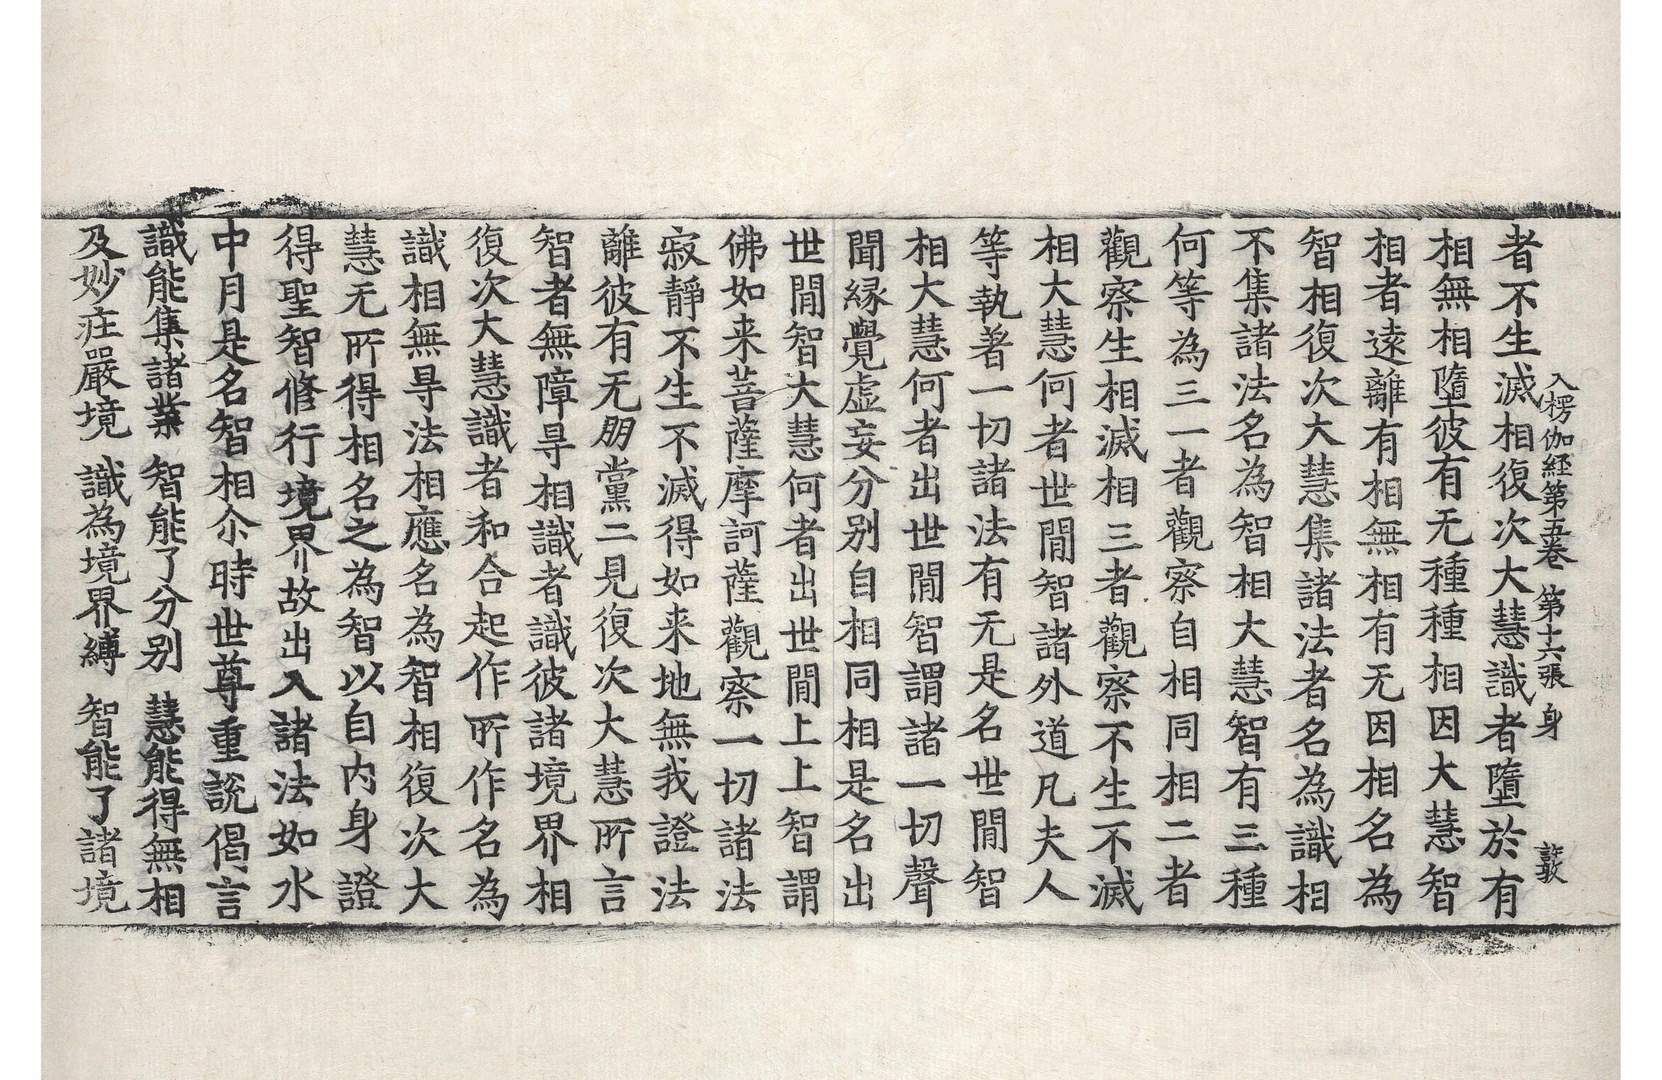 入楞伽経第五巻 第十六張 身 敦
者不生滅相復次大慧識者墮於有
相無相墮彼有无種種相因大慧智
相者遠離有相無相有无因相名為
智相復次大慧集諸法者名為識相
不集諸法名為智相大慧智有三種
何等為三一者觀察自相同相二者
觀察生相滅相三者觀察不生不滅
相大慧何者世間智諸外道凡夫人
等執著一切諸法有无是名世間智
相大慧何者出世間智謂諸一切聲
聞縁覺虚妄分别自相同相是名出
世間智大慧何者出世間上上智謂
佛如来菩薩摩訶薩觀察一切諸法
寂靜不生不滅得如来地無我證法
離彼有无朋黨二見復次大慧所言
智者無障㝵相識者識彼諸境界相
復次大慧識者和合起作所作名為
識相無㝵法相應名為智相復次大
慧无所得相名之為智以自内身證
得聖智修行境界故出入諸法如水
中月是名智相尒時世尊重說偈言
識能集諸業 智能了分别 慧能得無相
及妙庄嚴境 識為境界縛 智能了諸境